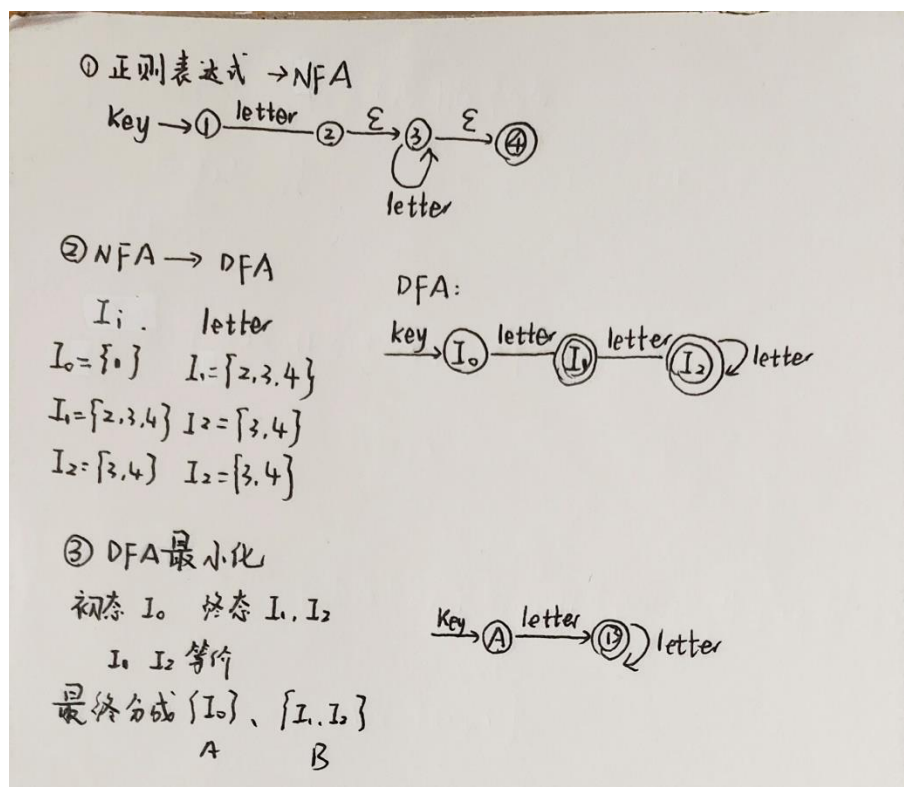 ① 正则表达式 → NFA
key → ① letter ② ε ③ ε ④
letter
② NFA → DFA
Ii. letter
I₀={1} I₁={2,3,4}
I₁={2,3,4} I2={3,4}
I₂={3,4} I₂={3,4}
DFA:
key I₀ letter I₁ letter I₂ letter
③ DFA最小化
初态 I₀ 终态 I₁,I₂
I₁ I₂ 等价
最终分成{I₀}、{I₁,I₂}
A B
Key A letter B letter